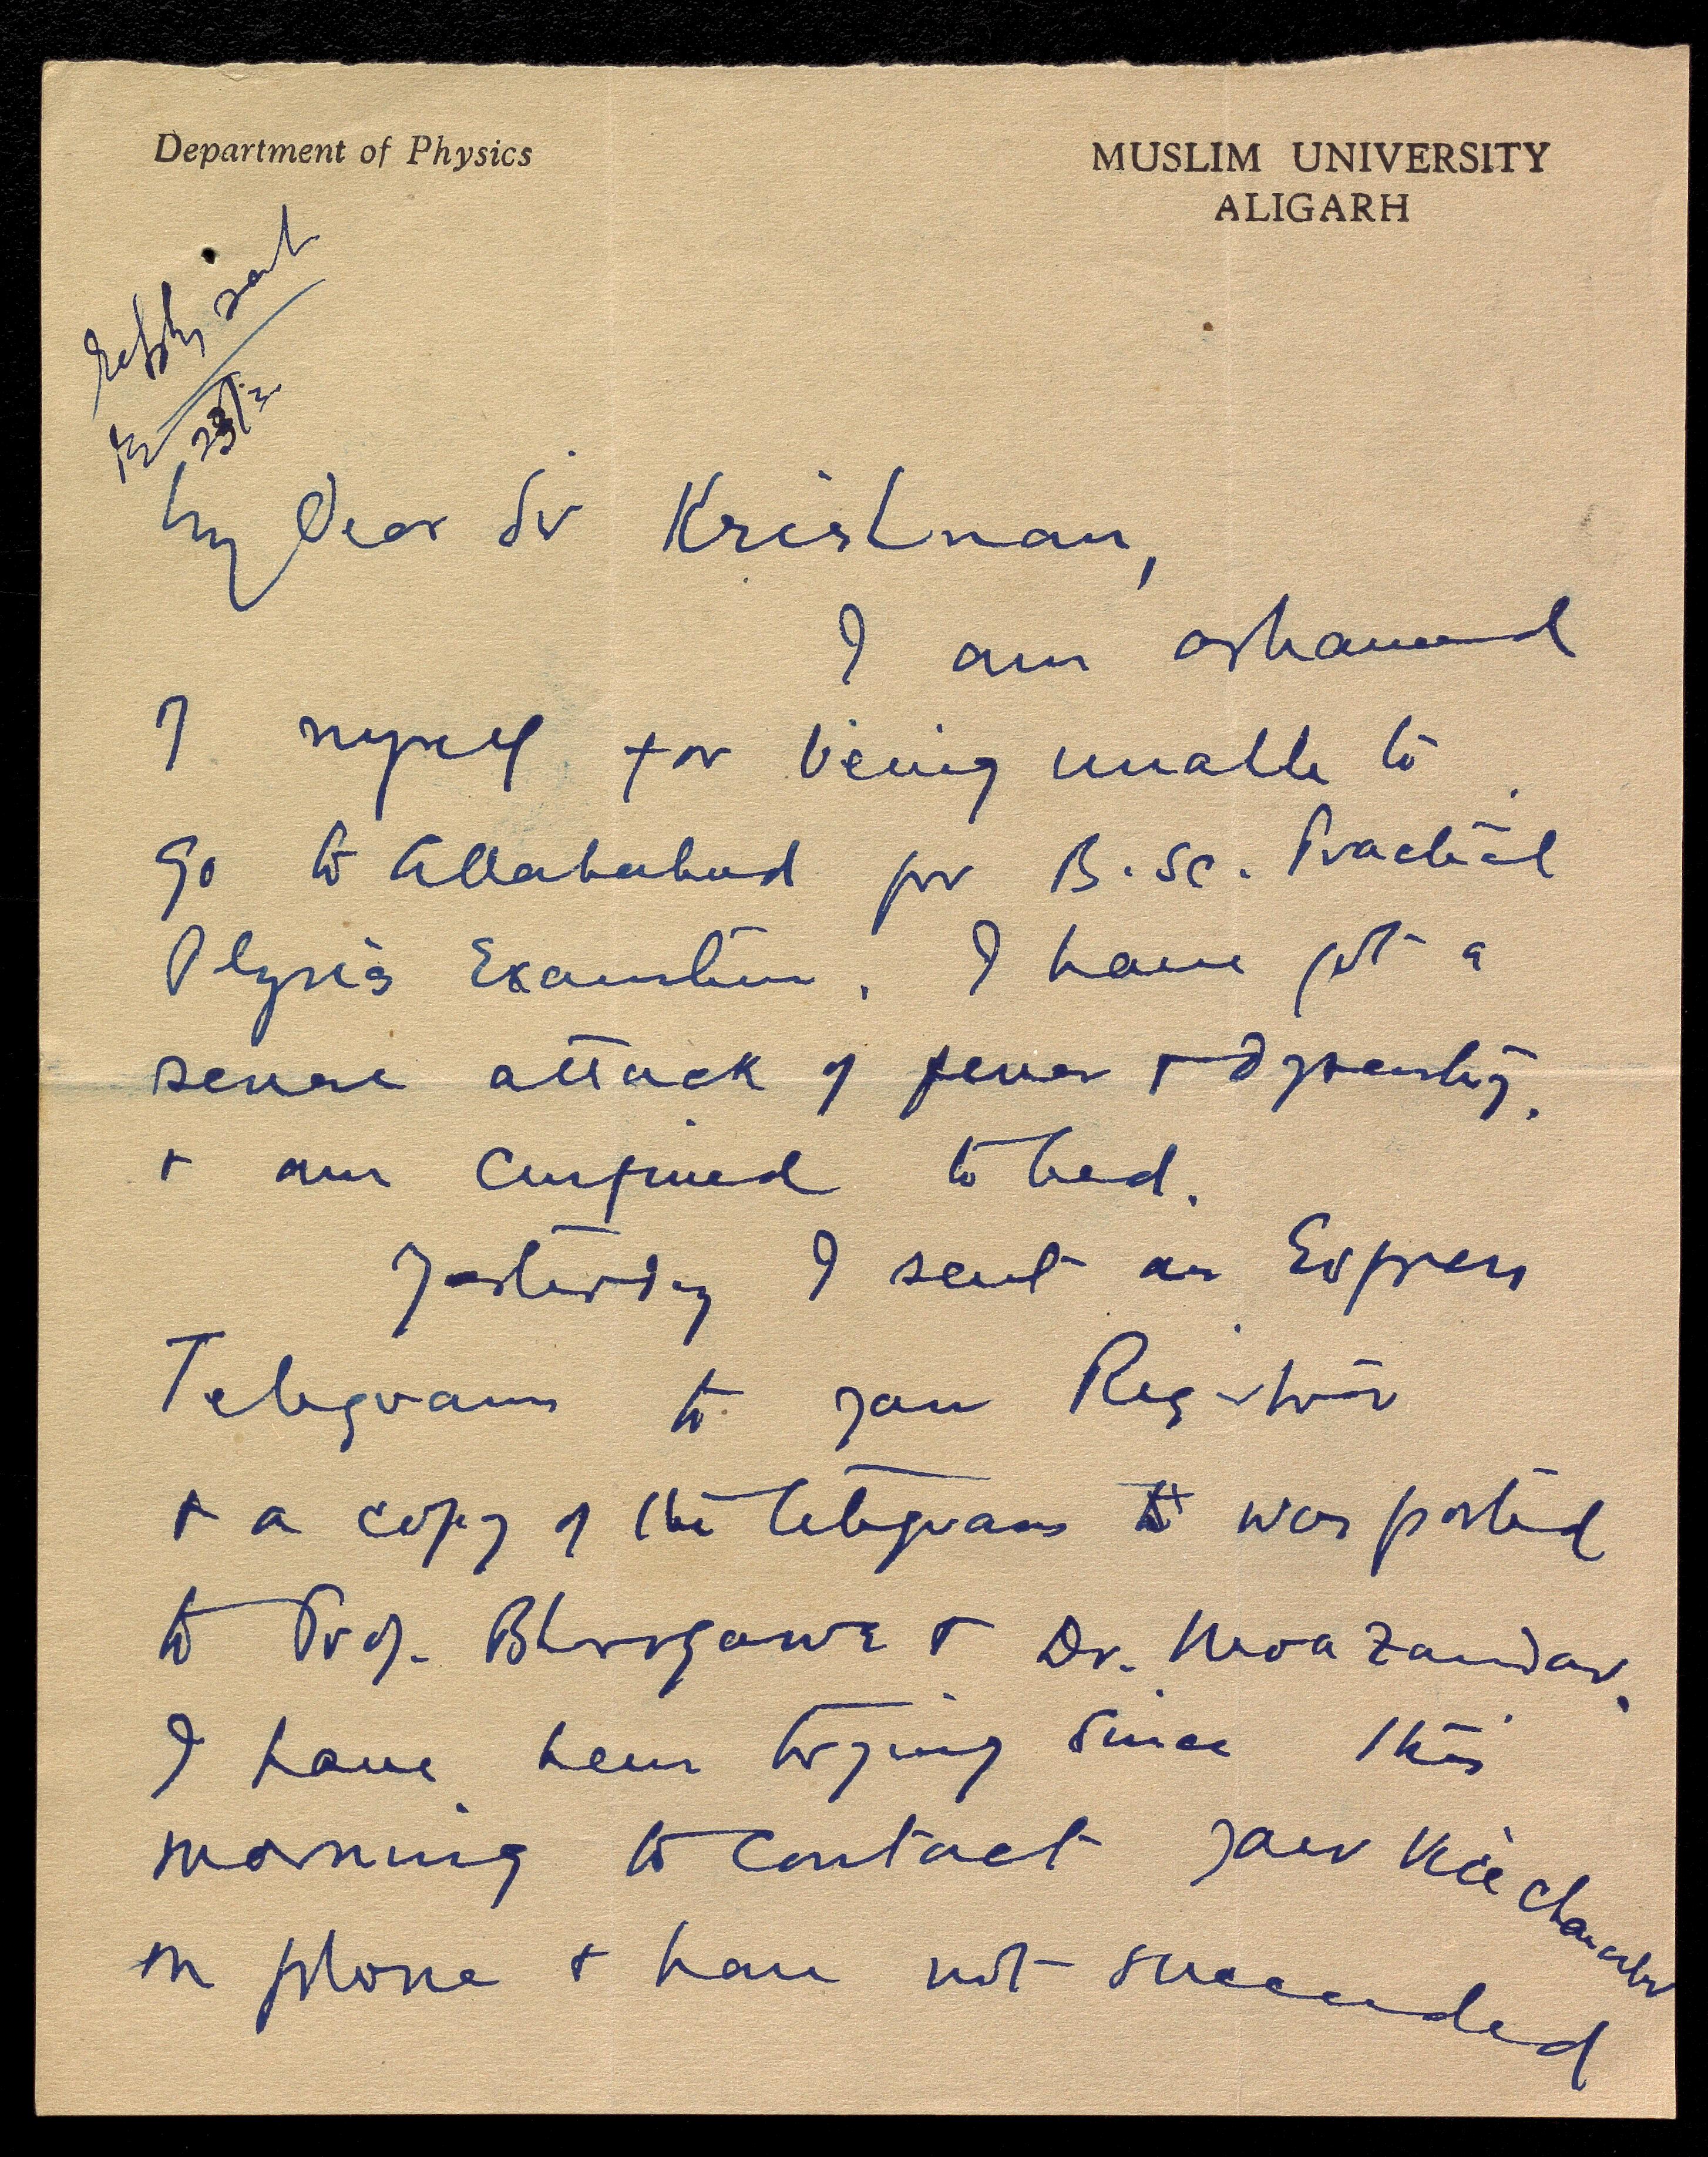 Department of Physics
MUSLIM UNIVERSITY
ALIGARH
Reply sent
23/3
My Dear Sir Krishnan,
I am ashamed
of myself for being unable to
go to Allahabad for B.Sc. Practical
Physics Examination. I have got a
severe attack of fever + dysentry.
+ am confined to bed.
Yesterday I sent an Express
Telegram to your Registrar
+ a copy of the telegram was posted
to Prof. Bhargava + Dr. Moazamdar.
I have been trying since this
morning to contact your Vice Chancellor
on phone + have not succeeded